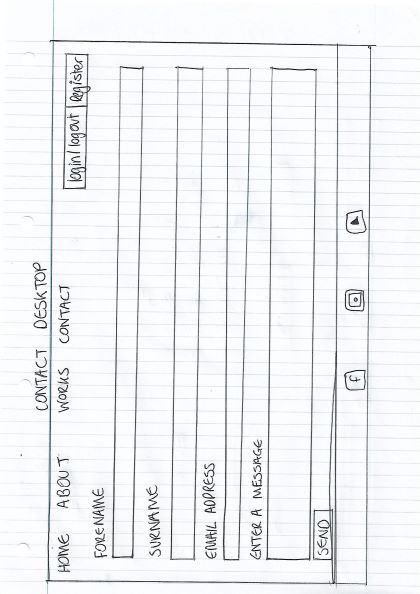 CONTACT DESKTOP
HOME ABOUT WORKS CONTACT login/logout Register
FORENAME
SURNAME
EMAIL ADDRESS
ENTER A MESSAGE
SEND
f